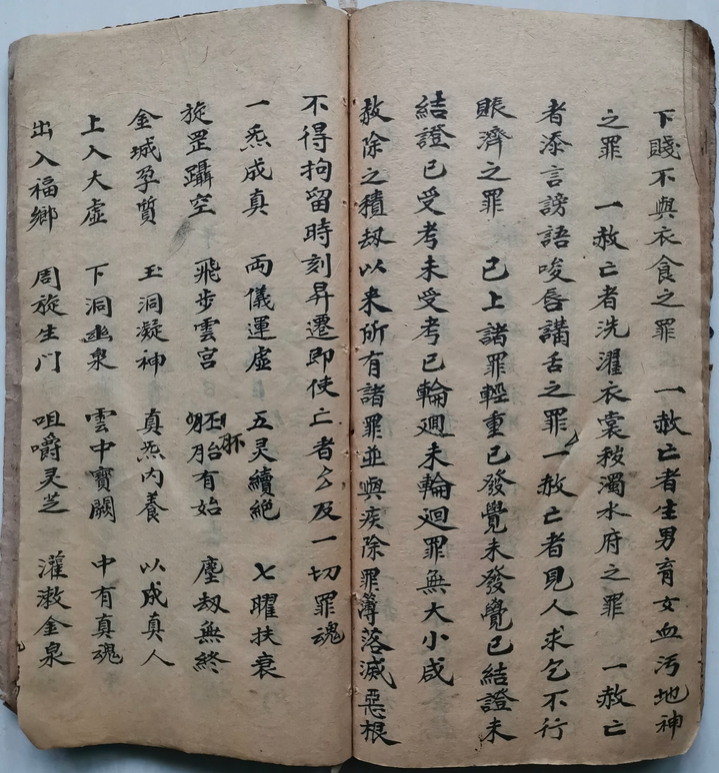 下賤不與衣食之罪 一赦亡者生男育女血污地神
之罪 一赦亡者洗濯衣裳秽濁水府之罪 一赦亡
者添言謗語唆唇講舌之罪 一赦亡者見人求乞不行
賬濟之罪 已上諸罪輕重已發覺未發覺已結證未
結證已受考未受考已輪迴未輪迴罪無大小咸
赦除之積刼以來所有諸罪並與疾除罪簿落滅惡根
不得拘留時刻昇遷即使亡者厶及一切罪魂
一炁成真 両儀運虛 五灵續絕 七曜扶衰
旋罡躡空 飛步雲宮 胚胎有始 塵刼無終
金城孕質 玉洞凝神 真炁内養 以成真人
上入大虛 下洞幽泉 雲中寶闕 中有真魂
出入福鄉 周旋生门 咀嚼灵芝 灌漱金泉